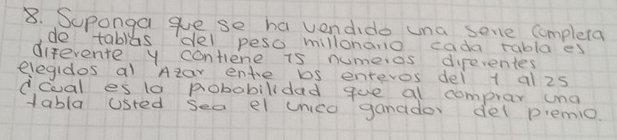 8. Suponga que se ha vendido una serie completa
de tablas del peso millonario cada tabla es
diferente y contiene 15 numeros diferentes
elegidos al Azar entre los enteros del 1 al 25
dcual es la probobilidad que al comprar una
tabla usted sea el unico ganador del premio.